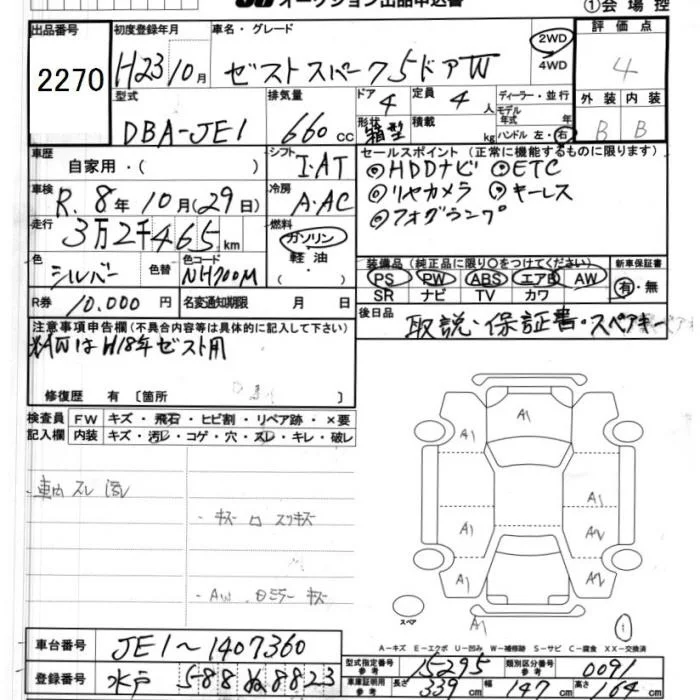 オークション出品申込書
①会場控
出品番号 初度登録年月 車名・グレード 評価点
2270 H23 10月 ゼストスパーク 5ドア W 2WD 4WD 4
型式 排気量 ドア 定員 ディーラー・並行 外装 内装
DBA-JE1 660cc 4 4人 モデル年式 年 B B
形状 箱型 積載 kg ハンドル 左・右
車歴 シフト セールスポイント (正常に機能するものに限ります)
自家用・( ) I・AT ◎HDDナビ ◎ETC
車検 冷房 ◎リヤカメラ ◎キーレス
R.8年10月(29日) A・AC ◎フォグランプ
走行 燃料
3万2千465km ガソリン 軽油 ( ・ )
装備品 (純正品に限り○をつけてください) 新車保証書
色 シルバー 色替 色コードNo. NH700M PS PW ABS エアB AW 有・無
SR ナビ TV カワ
R券 10,000円 名変通知期限 月 日 後日品
取説・保証書・スペアキー
注意事項申告欄 (不具合内容等は具体的に記入して下さい)
※AWはH18年ゼスト用
修復歴 有 〔箇所 〕
検査員 FW キズ・飛石・ヒビ割・リペア跡・×要
記入欄 内装 キズ・汚レ・コゲ・穴・スレ・キレ・破レ
A1
A1
A1
A1 A1 A2
A1 A2
車内 スレ 汚レ
・キズ ロ スリキズ
・AW.Dミラー キズ
スペア A1 1
A-キズ E-エクボ U-凹み W-補修跡 S-サビ C-腐食 XX-交換済
車台番号 JE1〜1407360
型式指定番号 参考 15295 類別区分番号 参考 0091
登録番号 水戸 588 ぬ 8823
車庫証明用 参考 長さ 339cm 幅 147cm 高さ 164cm